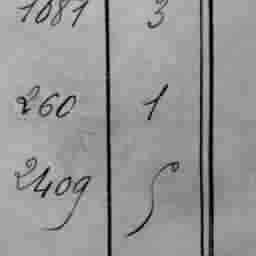 1081 3
260 1
2409